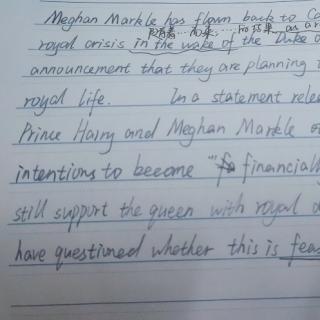 Meghan Markle has flown back to
随着…而来,…的结果 as a r
royal crisis in the wake of the Duke
announcement that they are planning
royal life. In a statement relea
Prince Harry and Meghan Markle
intentions to become " financiall
still support the queen with royal
have questioned whether this is feas